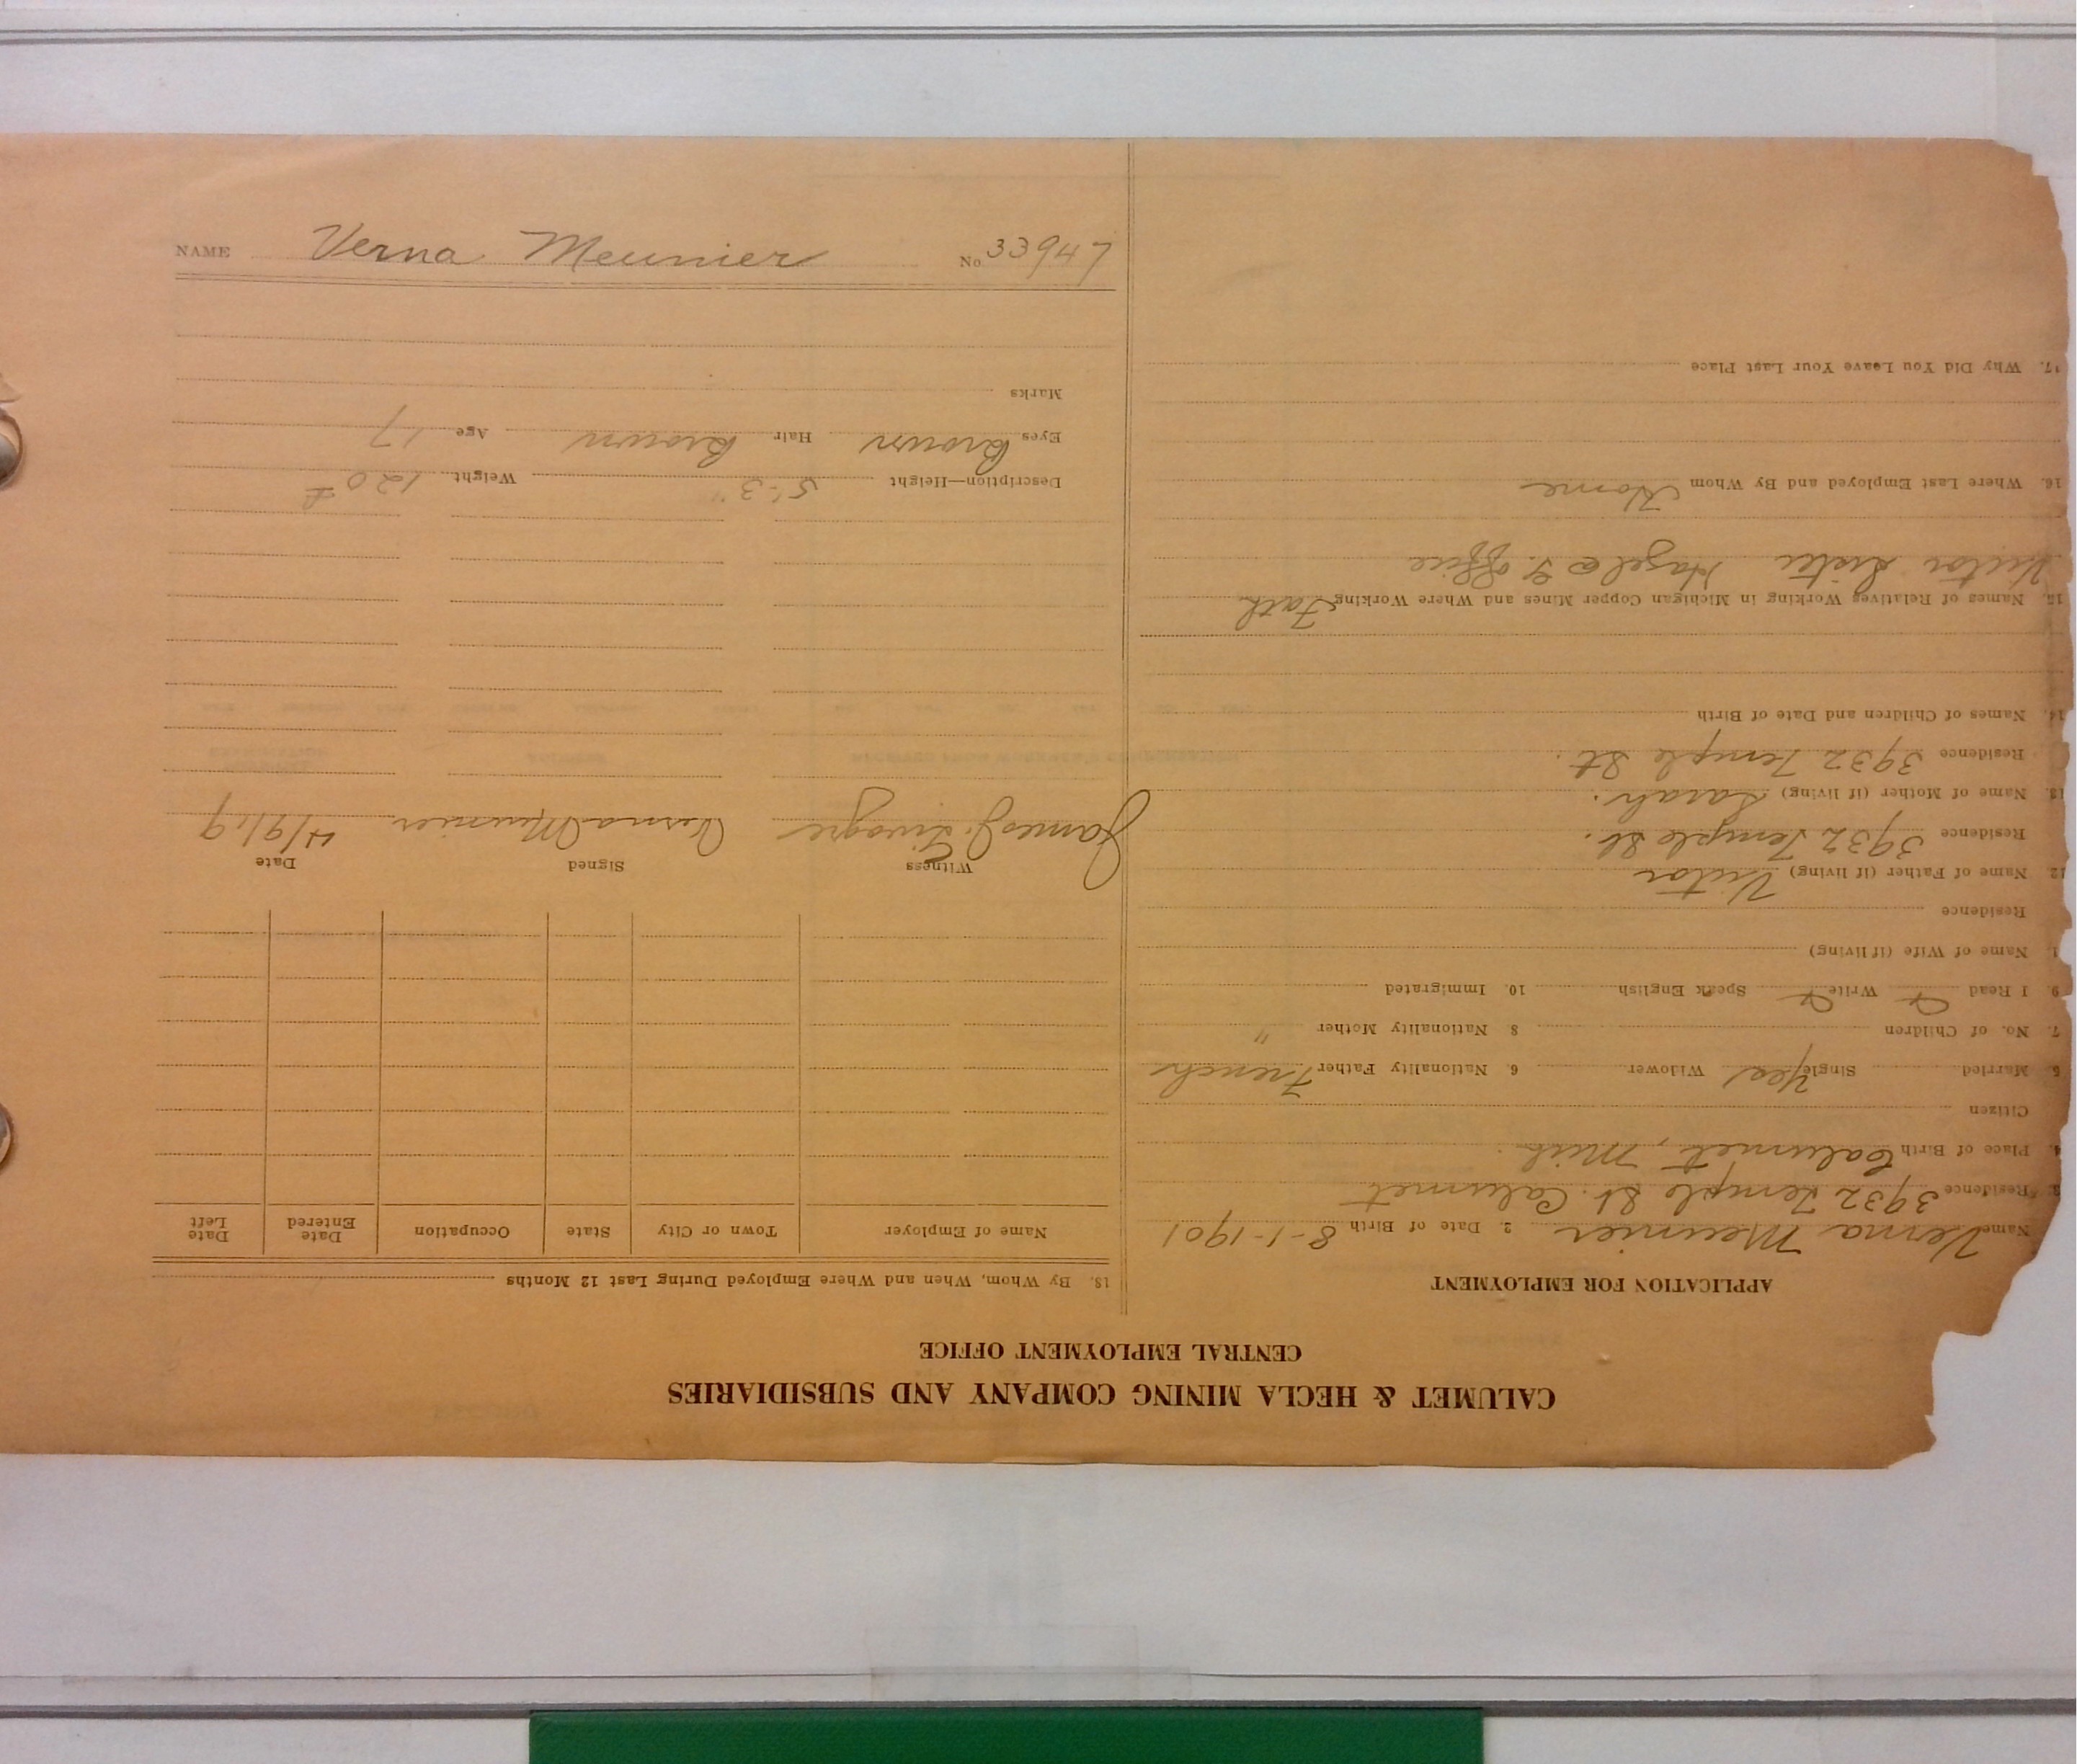 CALUMET & HECLA MINING COMPANY AND SUBSIDIARIES
CENTRAL EMPLOYMENT OFFICE
APPLICATION FOR EMPLOYMENT
Name Verna Meunier 2. Date of Birth 8-1-1901
3. Residence 3932 Temple St. Calumet
4. Place of Birth Calumet, Mich.
Citizen
5. Married Single Yes Widower 6. Nationality Father French
7. No. of Children 8. Nationality Mother "
9. I Read Write Speak English 10. Immigrated
1. Name of Wife (if living)
Residence
12. Name of Father (if living) Victor
Residence 3932 Temple St.
13. Name of Mother (if living) Sarah.
Residence 3932 Temple St.
14. Names of Children and Date of Birth
15. Names of Relatives Working in Michigan Copper Mines and Where Working Fath
Victor Sister Hazel @ G. Office
16. Where Last Employed and By Whom Home
17. Why Did You Leave Your Last Place
18. By Whom, When and Where Employed During Last 12 Months
Name of Employer Town or City State Occupation Date Entered Date Left
Witness Signed Date
James J. Verna Meunier 4/9/19
Description—Height 5'-3" Weight 120 #
Eyes Brown Hair Brown Age 17
Marks
NAME Verna Meunier No 33947